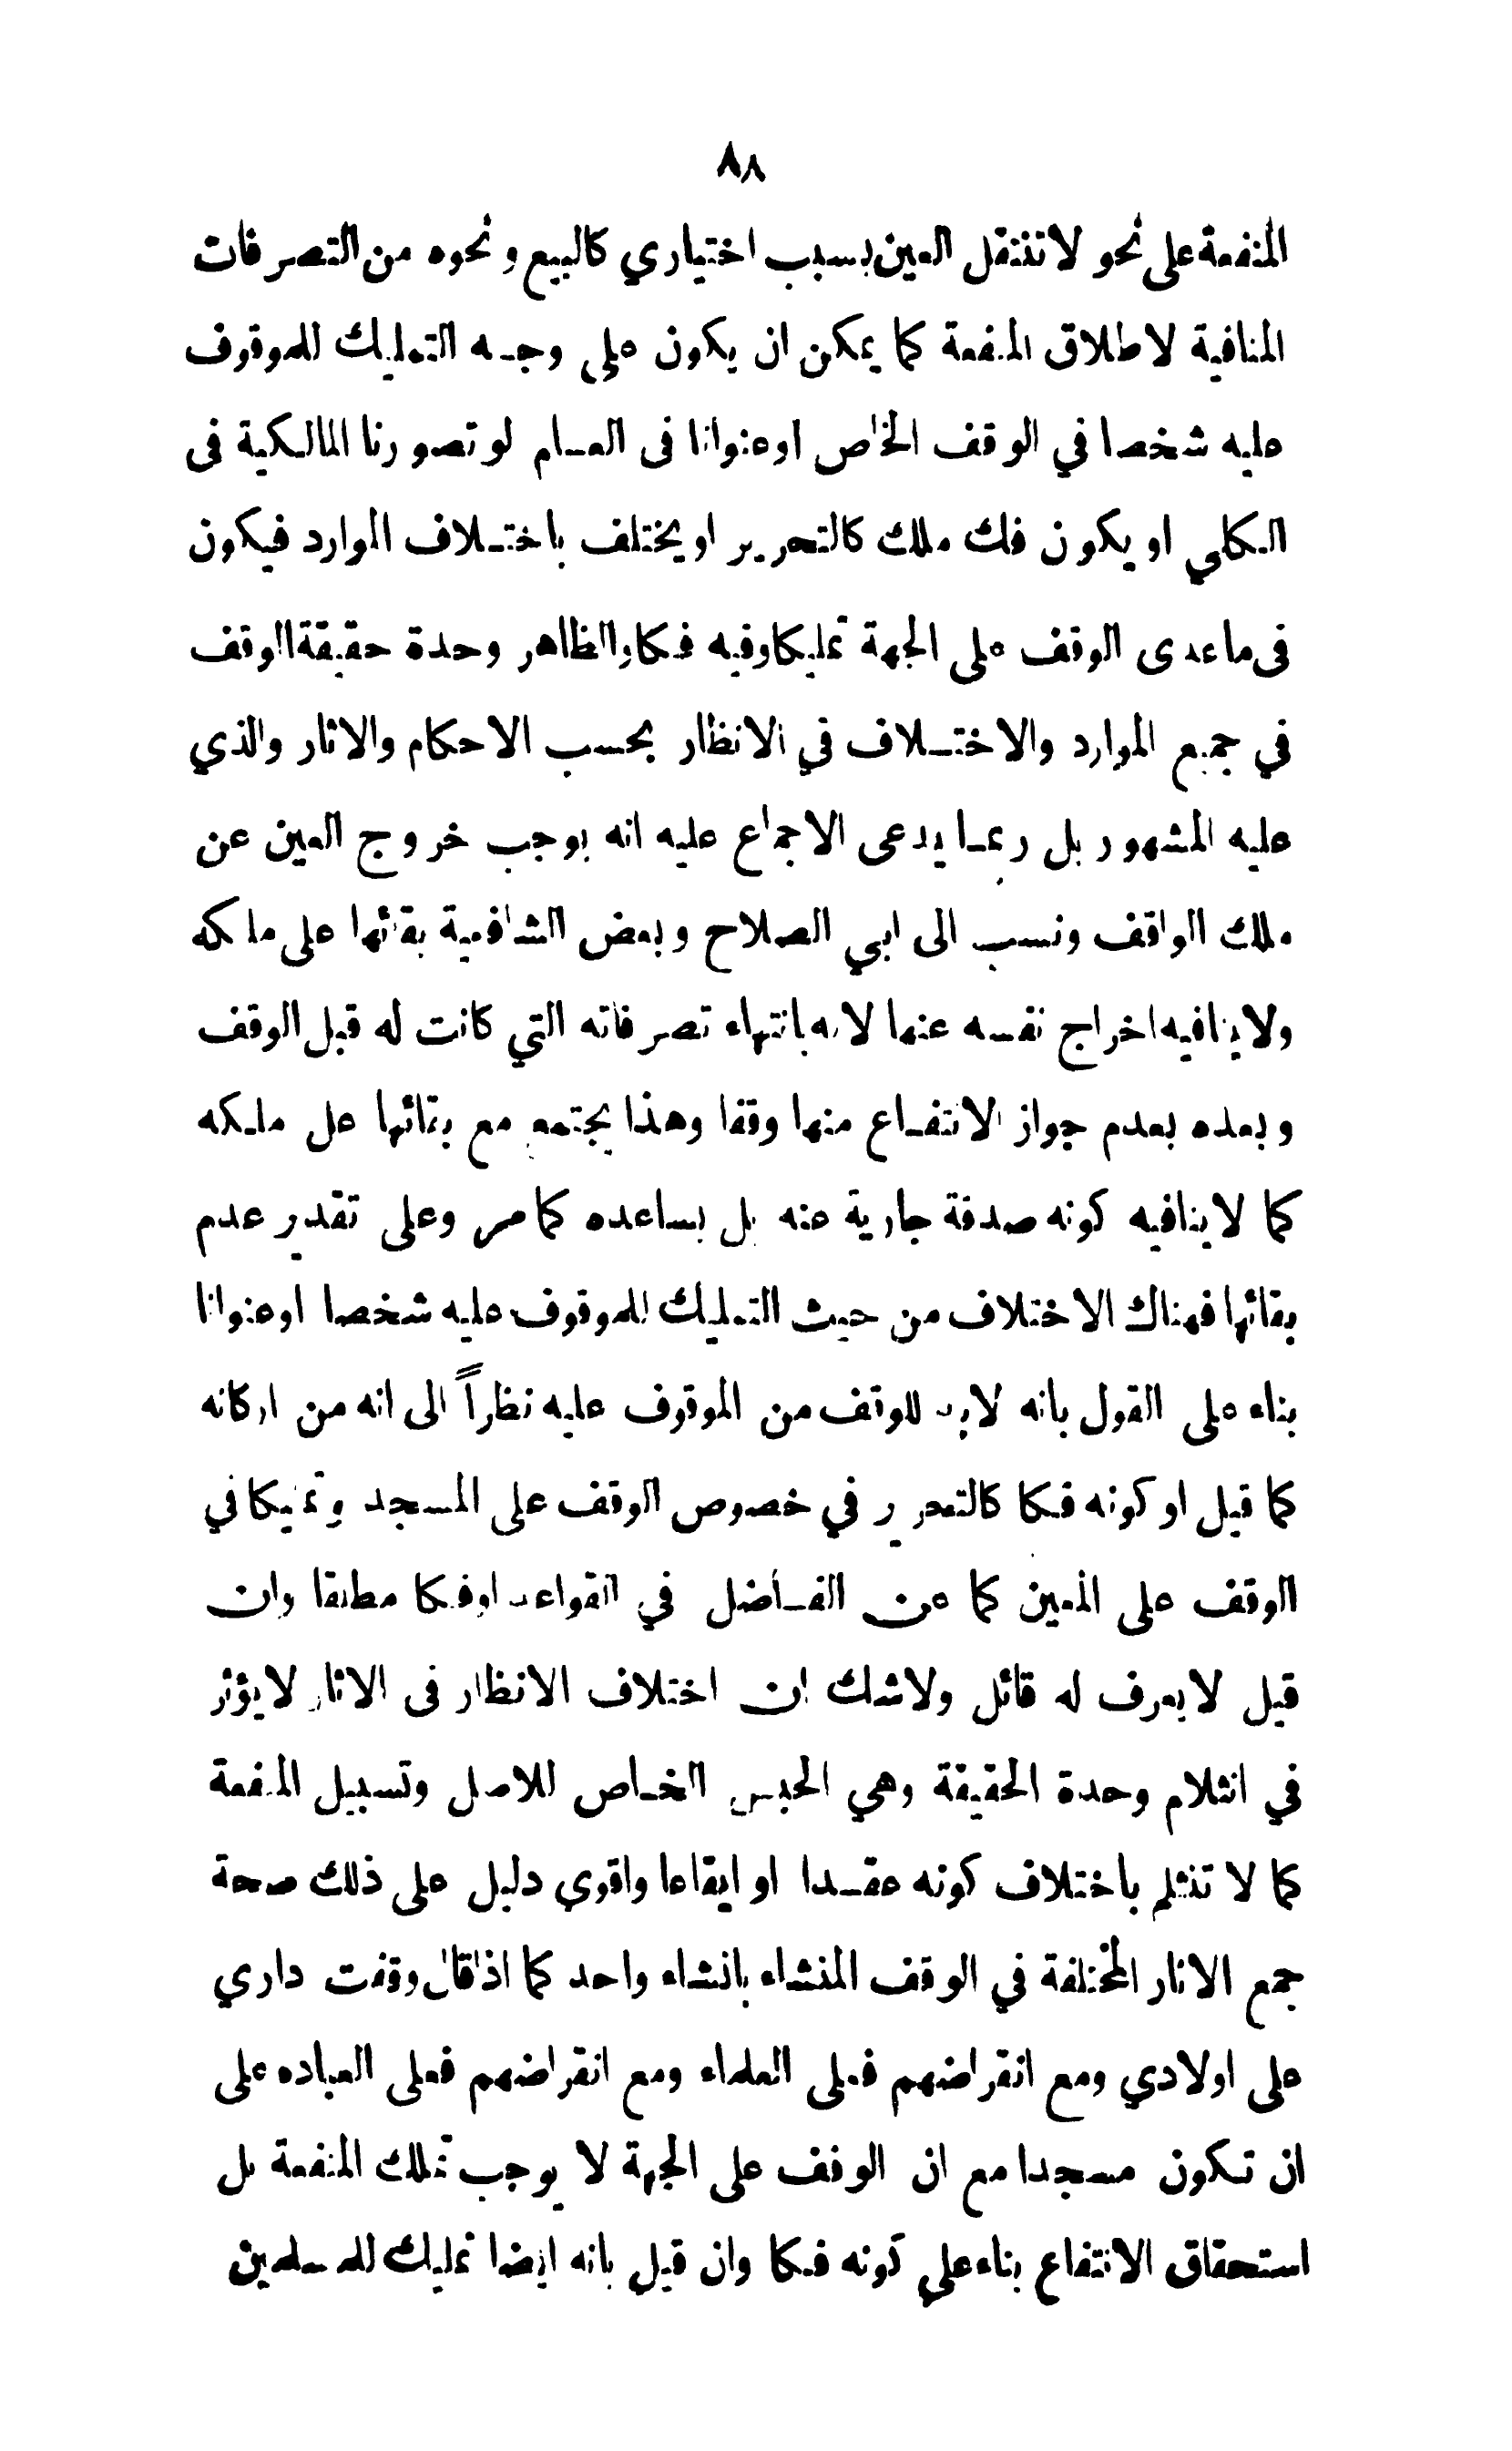 ٨٨
المنفعة على نحو لا تنتقل العين بسبب اختياري كالبيع ونحوه من التصرفات
المنافية لاطلاق المنفعة كما يمكن ان يكون على وجه التمليك للموقوف
عليه شخصا في الوقف الخاص او عنوانا فى العام لو تصورنا المالكية فى
الكلي او يكون فك ملك كالتحرير او يختلف باختلاف الموارد فيكون
فى ما عدى الوقف على الجهة تمليكا وفيه فكا والظاهر وحدة حقيقة الوقف
في جميع الموارد والاختلاف في الانظار بحسب الاحكام والاثار والذي
عليه المشهور بل ربما يدعى الاجماع عليه انه يوجب خروج العين عن
ملك الواقف ونسب الى ابي الصلاح وبعض الشافعية بقائها على ملكه
ولا ينافيه اخراج نفسه عنها لانه بانتهاء تصرفاته التي كانت له قبل الوقف
وبعده بعدم جواز الانتفاع منها وقفا وهذا يجتمع مع بقائها على ملكه
كما لا ينافيه كونه صدقة جارية عنه بل يساعده كما مر وعلى تقدير عدم
بقائها فهناك الاختلاف من حيث التمليك للموقوف عليه شخصا او عنوانا
بناء على القول بانه لابد للوقف من الموقوف عليه نظراً الى انه من اركانه
كما قيل او كونه فكا كالتحرير في خصوص الوقف على المسجد وتمليكا في
الوقف على المعين كما عن الفاضل في القواعد او فكا مطلقا وان
قيل لا يعرف له قائل ولاشك ان اختلاف الانظار فى الاثار لا يؤثر
في انثلام وحدة الحقيقة وهي الحبس الخاص للاصل وتسبيل المنفعة
كما لا تنثلم باختلاف كونه عقدا او ايقاعا واقوى دليل على ذلك صحة
جمع الاثار المختلفة في الوقف المنشاء بانشاء واحد كما اذا قال وقفت داري
على اولادي ومع انقراضهم فعلى العلماء ومع انقراضهم فعلى العباده على
ان تكون مسجدا مع ان الوقف على الجهة لا يوجب تملك المنفعة بل
استحقاق الانتفاع بناء على كونه فكا وان قيل بانه ايضا تمليك للمسلمين